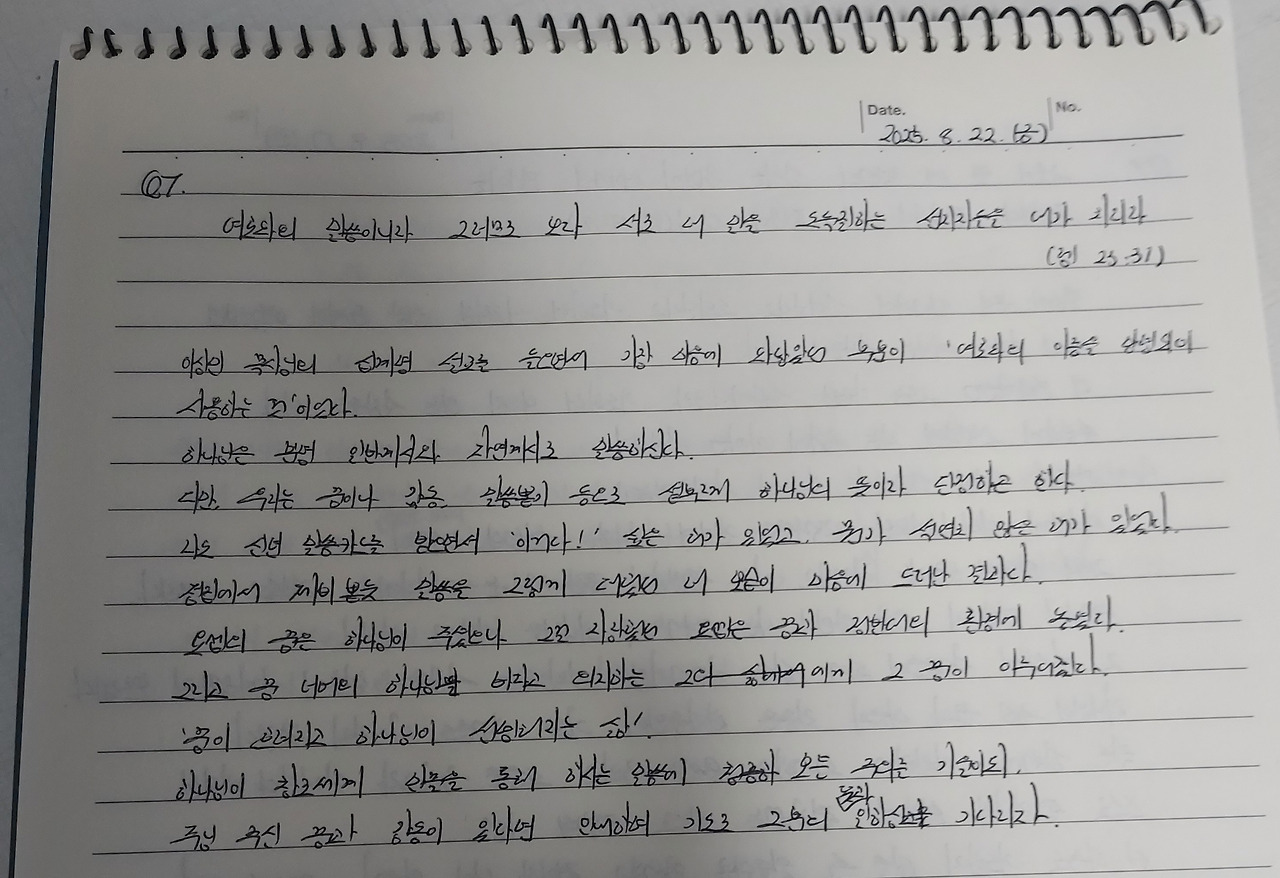 Date.
No.
2025. 8. 22. (금)
QT.
여호와의 말씀이니라 그러므로 보라 서로 내 말을 도둑질하는 선지자들을 내가 치리라
(렘 23:31)
목사님의 설교를 들으면서 가장 마음에 와닿았던 부분이 '여호와의 이름을
사용하는 것'이었다.
하나님은 분명 인격체시고 말씀하신다.
다만, 우리는 꿈이나 감동, 말씀뽑기 등으로 섣부르게 하나님의 뜻이라 단정하곤 한다.
나도 신년 말씀카드를 받으면서 '이거다!' 싶은 때가 있었고, 뭔가 석연치 않은 때가 있었다.
점집에서 제비 뽑듯 말씀을 그렇게 대했던 내 모습이 마음에 드러난 결과다.
요셉의 꿈은 하나님이 주셨으나 그걸 자랑했던 요셉은 꿈과 정반대의 환경에 놓였다.
그리고 꿈 너머의 하나님만 바라고 의지하는 그에게 그 꿈이 이루어졌다.
'꿈이 흐려지고 하나님이 선명해지는 삶'.
하나님이 인물을 통해 하시는 말씀에 모든
주님 주신 꿈과 감동이 있다면 인내하며 기도로 그분의 기다리자.